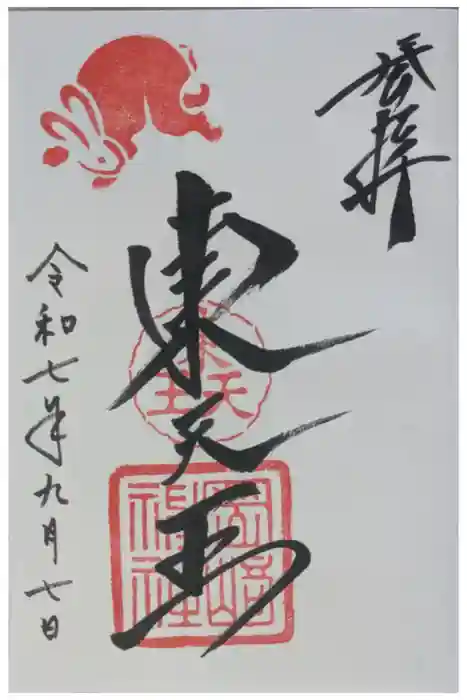 奉拝
東天王
令和七年九月七日
東天王
岡崎神社